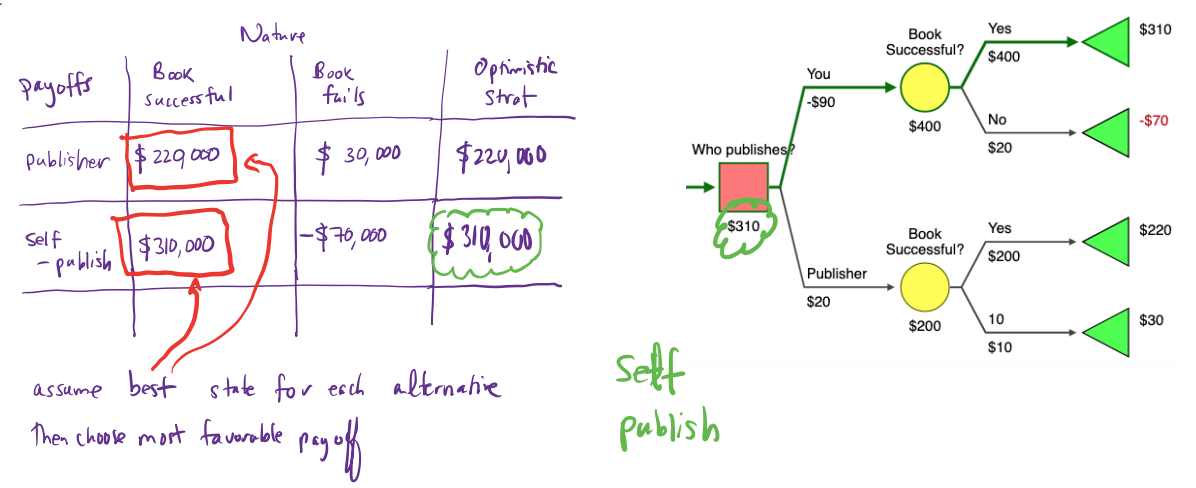 Nature
Payoffs
Book successful
Book fails
Optimistic Strat
publisher
$220,000
$ 30,000
$220,000
Self - publish
$310,000
-$70,000
$310,000
assume best state for each alternative
Then choose most favorable payoff
Who publishes?
$310
You
-$90
Book
Successful?
$400
Yes
$400
$310
No
$20
-$70
Publisher
$20
Book
Successful?
$200
Yes
$200
$220
10
$10
$30
Self
publish